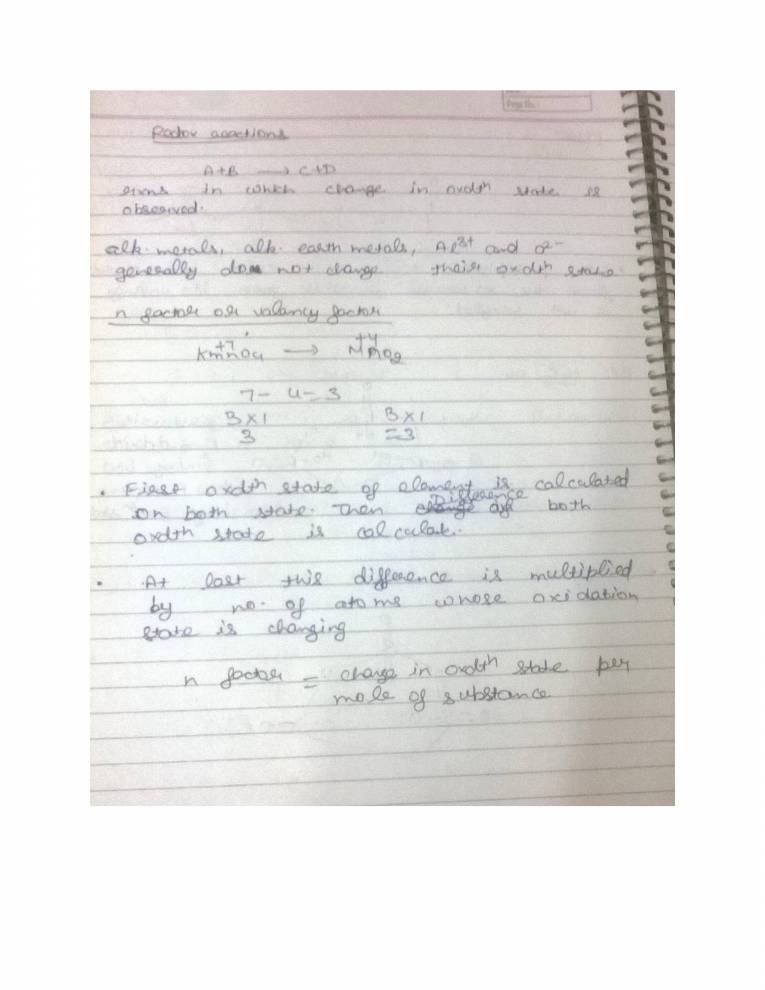 Redox reactions
A+B → C+D
rxns in which change in oxdth state is
observed.
alk. metals, alk. earth metals, Al3+ and O2-
generally do not change their oxdth state.
n factor or valancy factor
+7 +4
KMnO4 → MnO2
7 - 4 = 3
3 × 1 3 × 1
3 = 3
• First oxdth state of element is calculated
Difference
on both state. Then change of both
oxdth state is calculate.
• At last this difference is multiplied
by no. of atoms whose oxidation
state is changing
n factor = change in oxdth state per
mole of substance